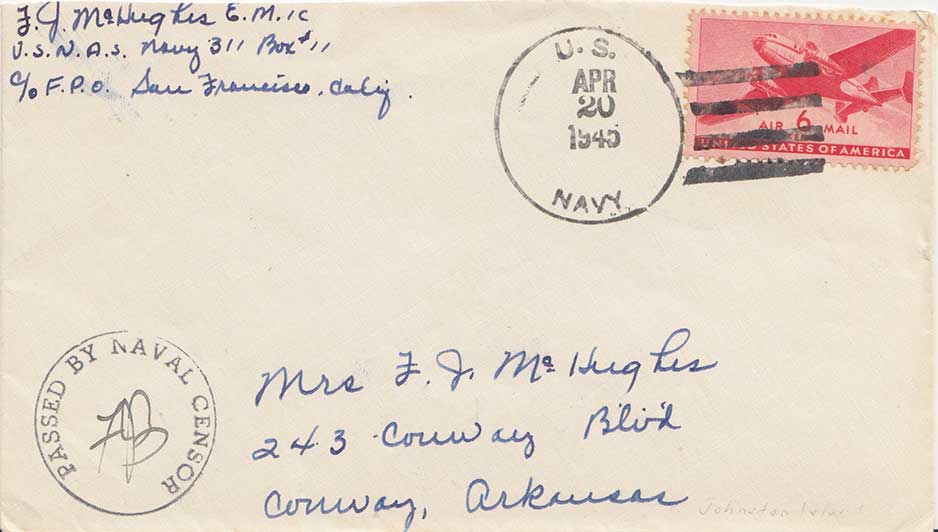 F. J. McHughes E.M.1c
U.S.N.A.S. Navy 311 Box #11
c/o F.P.O. San Francisco, Calif.
U.S.
APR
20
1945
NAVY
AIR 6 MAIL
UNITED STATES OF AMERICA
PASSED BY NAVAL CENSOR
Mrs F. J. McHughes
243 Conway Blv'd
Conway, Arkansas
Johnston Island